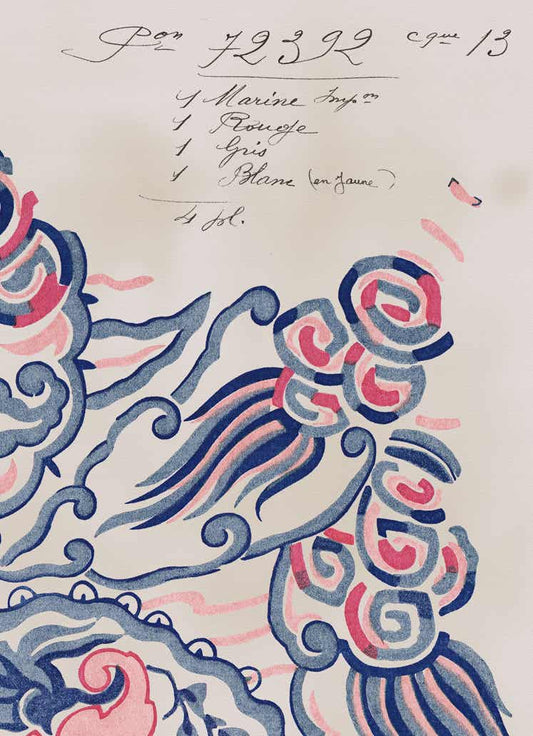 Pon 72392 cque 13
1 Marine Impon
1 Rouge
1 Gris
1 Blanc (en Jaune)
4 pl.